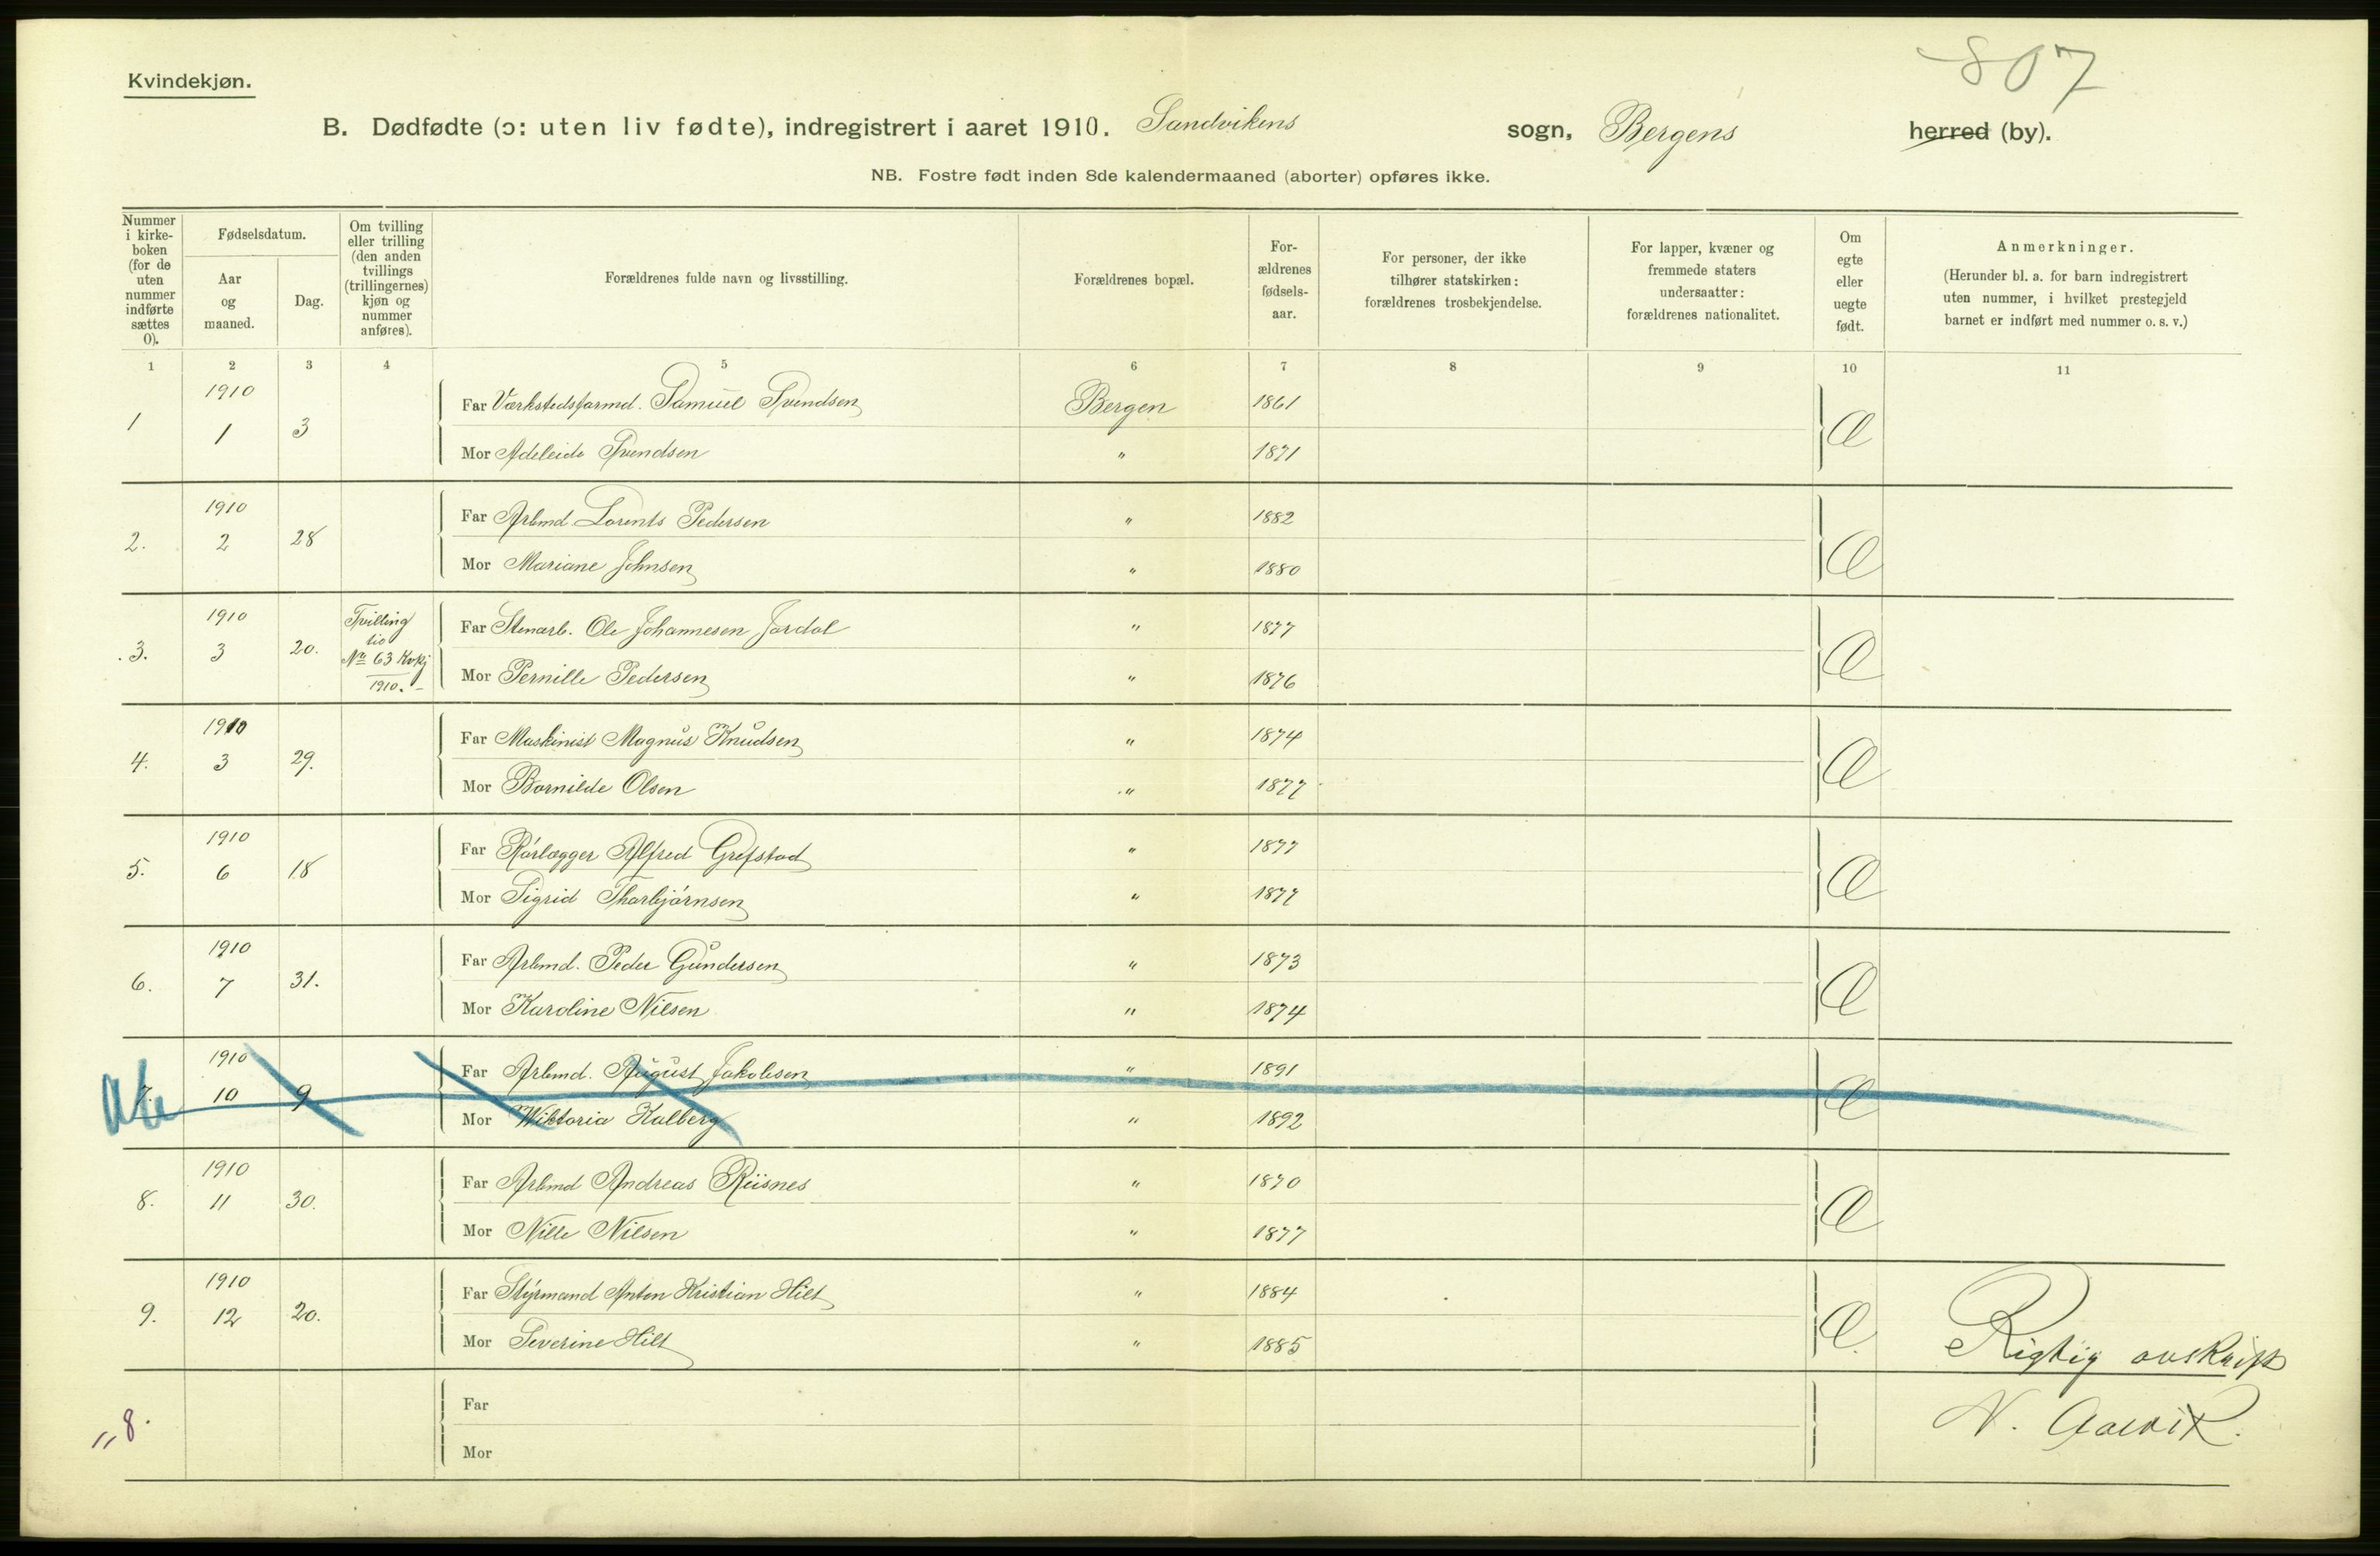 807
Kvindekjøn.
B. Dødfødte (ɔ: uten liv fødte), indregistrert i aaret 1910. Sandvikens sogn, Bergens herred (by).
NB. Fostre født inden 8de kalendermaaned (aborter) opføres ikke.
Nummer i kirke-boken (for de uten nummer indførte sættes 0).
Fødselsdatum.
Aar og maaned.
Dag.
Om tvilling eller trilling (den anden tvillings (trillingernes) kjøn og nummer anføres).
Forældrenes fulde navn og livsstilling.
Forældrenes bopæl.
For-ældrenes fødsels-aar.
For personer, der ikke tilhører statskirken: forældrenes trosbekjendelse.
For lapper, kvæner og fremmede staters undersaatter: forældrenes nationalitet.
Om egte eller uegte født.
Anmerkninger.
(Herunder bl. a. for barn indregistrert uten nummer, i hvilket prestegjeld barnet er indført med nummer o. s. v.)
1 2 3 4 5 6 7 8 9 10 11
1 1910 1 3 Far Værkstedsformd. Samuel Svendsen Bergen 1861 Æ
Mor Adeleide Svendsen " 1871
2. 1910 2 28 Far Arbmd. Lorents Pedersen " 1882 Æ
Mor Mariane Johnsen " 1880
3. 1910 3 20. Tvilling til No 63 Kvkj 1910. Far Stenarb. Ole Johannesen Jordal " 1877 Æ
Mor Pernille Pedersen " 1876
4. 1910 3 29. Far Maskinist Magnus Knudsen " 1874 Æ
Mor Bornilde Olsen " 1877
5. 1910 6 18 Far Rørlægger Alfred Grefstad " 1877 Æ
Mor Sigrid Thorbjørnsen " 1877
6. 1910 7 31. Far Arbmd. Peder Gundersen " 1873 Æ
Mor Karoline Nilsen " 1874
7. 1910 10 9 Far Arbmd. August Jakobsen " 1891 Æ
Mor Wiktoria Kalberg " 1892
8. 1910 11 30. Far Arbmd Andreas Riisnes " 1870 Æ
Mor Nille Nilsen " 1877
9. 1910 12 20. Far Styrmand Anton Kristian Hilt " 1884 Æ.
Mor Severine Hilt " 1885
Rigtig avskrift
Far
N. Aalvik.
8.
Mor